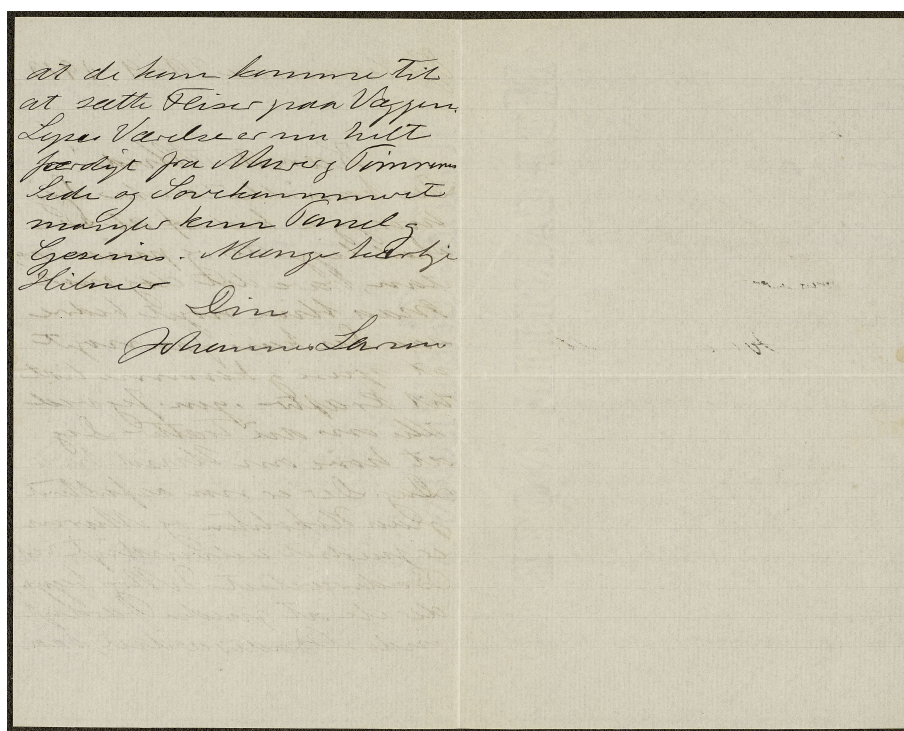 at de kan komme til
at sætte Fliser paa Væggen.
Lyses Værelse er nu helt
færdigt fra Murer og Tømrerens
Side og Sovekammeret
mangler kun Panel og
Gesims. Mange kærlige
Hilsner
Din
Johannes Larsen